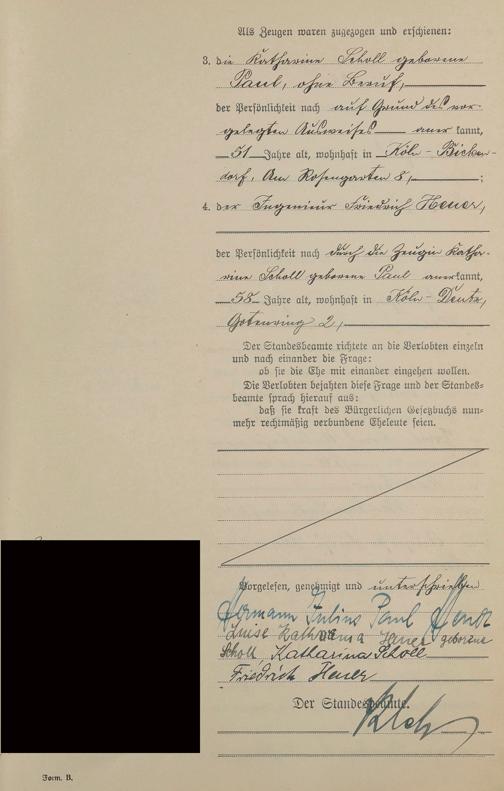 Als Zeugen waren zugezogen und erschienen:
3. die Katharine Scholl geborene
Paul, ohne Beruf,
der Persönlichkeit nach auf Grund des vor-
gelegten Ausweises anerkannt,
51 Jahre alt, wohnhaft in Köln - Bicken-
dorf, Am Rosengarten 8, ;
4. der Ingenieur Friedrich Heuer,
der Persönlichkeit nach durch die Zeugin Katha-
rine Scholl geborene Paul anerkannt,
58 Jahre alt, wohnhaft in Köln - Deutz,
Gotenring 2,
Der Standesbeamte richtete an die Verlobten einzeln
und nach einander die Frage:
ob sie die Ehe mit einander eingehen wollen.
Die Verlobten bejahten diese Frage und der Standes-
beamte sprach hierauf aus:
daß sie kraft des Bürgerlichen Gesetzbuchs nun-
mehr rechtmäßig verbundene Eheleute seien.
Vorgelesen, genehmigt und unterschrieben
Hermann Julius Paul Heuer
Luise Katharina Heuer geborene
Scholl, Katharina Scholl
Friedrich Heuer
Der Standesbeamte.
Form. B.